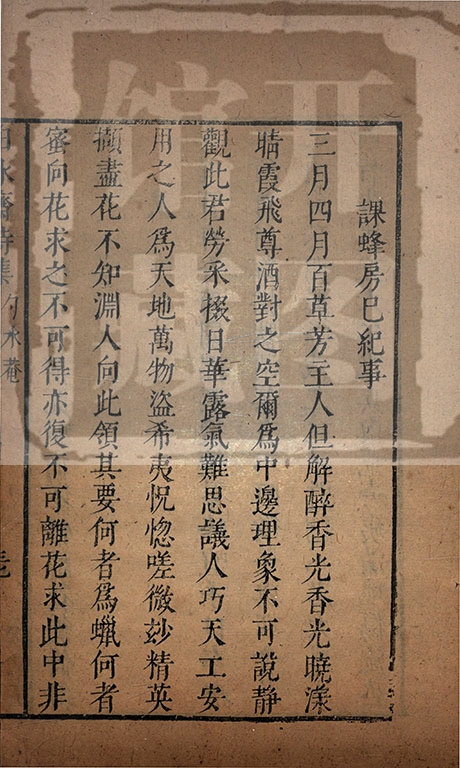 課蜂房巳紀事
三月四月百草芳主人但解醉香光香光曉漾
晴霞飛尊酒對之空爾爲中邊理象不可說靜
觀此君勞采掇日華露氣難思議人巧天工安
用之人爲天地萬物盜希夷怳惚嗟微玅精英
擷盡花不知淵人向此領其要何者爲蠟何者
蜜向花求之不可得亦復不可離花求此中非
白氷齋詩集 勺水菴
开图馆藏